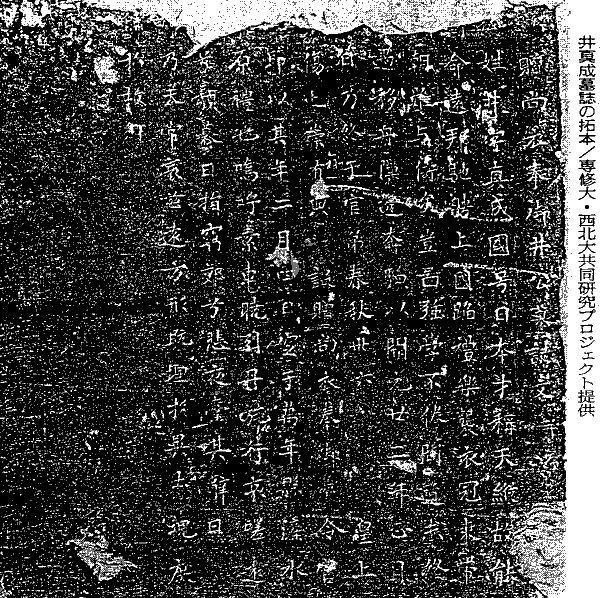 井真成墓誌の拓本／専修大・西北大共同研究プロジェクト提供
贈尚衣奉御井公墓誌文并序
姓井字真成國号日本才稱天縱故能
命遠邦馳騁上國蹈禮樂襲衣冠束帶
朝難与儔矣豈圖強學不倦問道未終
遇移舟隙逢奔駟以開元廿二年正月
日乃終于官弟春秋卅六皇上
傷追崇有典詔贈尚衣奉御葬令官
即以其年二月四日窆于萬年縣滻水
原禮也嗚呼素車曉引丹旐行哀嗟遠
兮頹暮日指窮郊兮悲夜臺其辭曰
乃天常哀茲遠方形既埋於異土魂庶
於故鄉